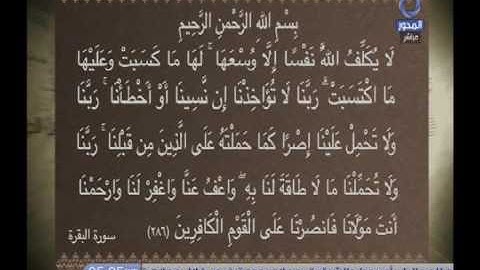 المحور
مباشر
بِسْمِ اللَّهِ الرَّحْمَنِ الرَّحِيمِ
لَا يُكَلِّفُ اللَّهُ نَفْسًا إِلَّا وُسْعَهَا ۚ لَهَا مَا كَسَبَتْ وَعَلَيْهَا
مَا اكْتَسَبَتْ ۗ رَبَّنَا لَا تُؤَاخِذْنَا إِن نَّسِينَا أَوْ أَخْطَأْنَا ۚ رَبَّنَا
وَلَا تَحْمِلْ عَلَيْنَا إِصْرًا كَمَا حَمَلْتَهُ عَلَى الَّذِينَ مِن قَبْلِنَا ۚ رَبَّنَا
وَلَا تُحَمِّلْنَا مَا لَا طَاقَةَ لَنَا بِهِ ۖ وَاعْفُ عَنَّا وَاغْفِرْ لَنَا وَارْحَمْنَا
أَنتَ مَوْلَانَا فَانصُرْنَا عَلَى الْقَوْمِ الْكَافِرِينَ (٢٨٦) سورة البقرة